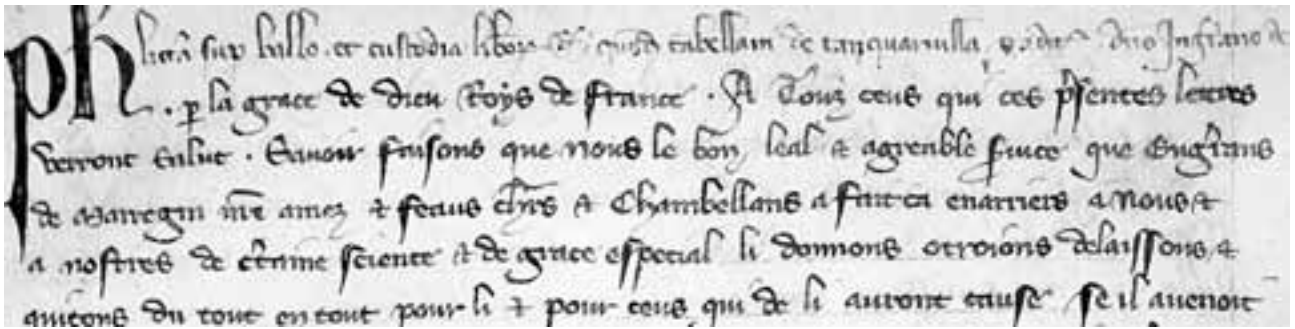 Ph
littera sup ballo et custodia liborum de tanquarvilla dno Ingrano de
. p la grace de dieu Roys de france . A Touz ceus qui ces psentes lettres
verront salut . Savoir faisons que nous le bon leal & agreable svice que Engrans
de Marregni nre amez & feaus chrs & Chambellans a fait ca enarriers a nous &
a nostres de ctaine science & de grace especial li donnons otroions delaissons &
quitons du tout en tout pour li & pour ceus qui de li auront cause se il avenoit